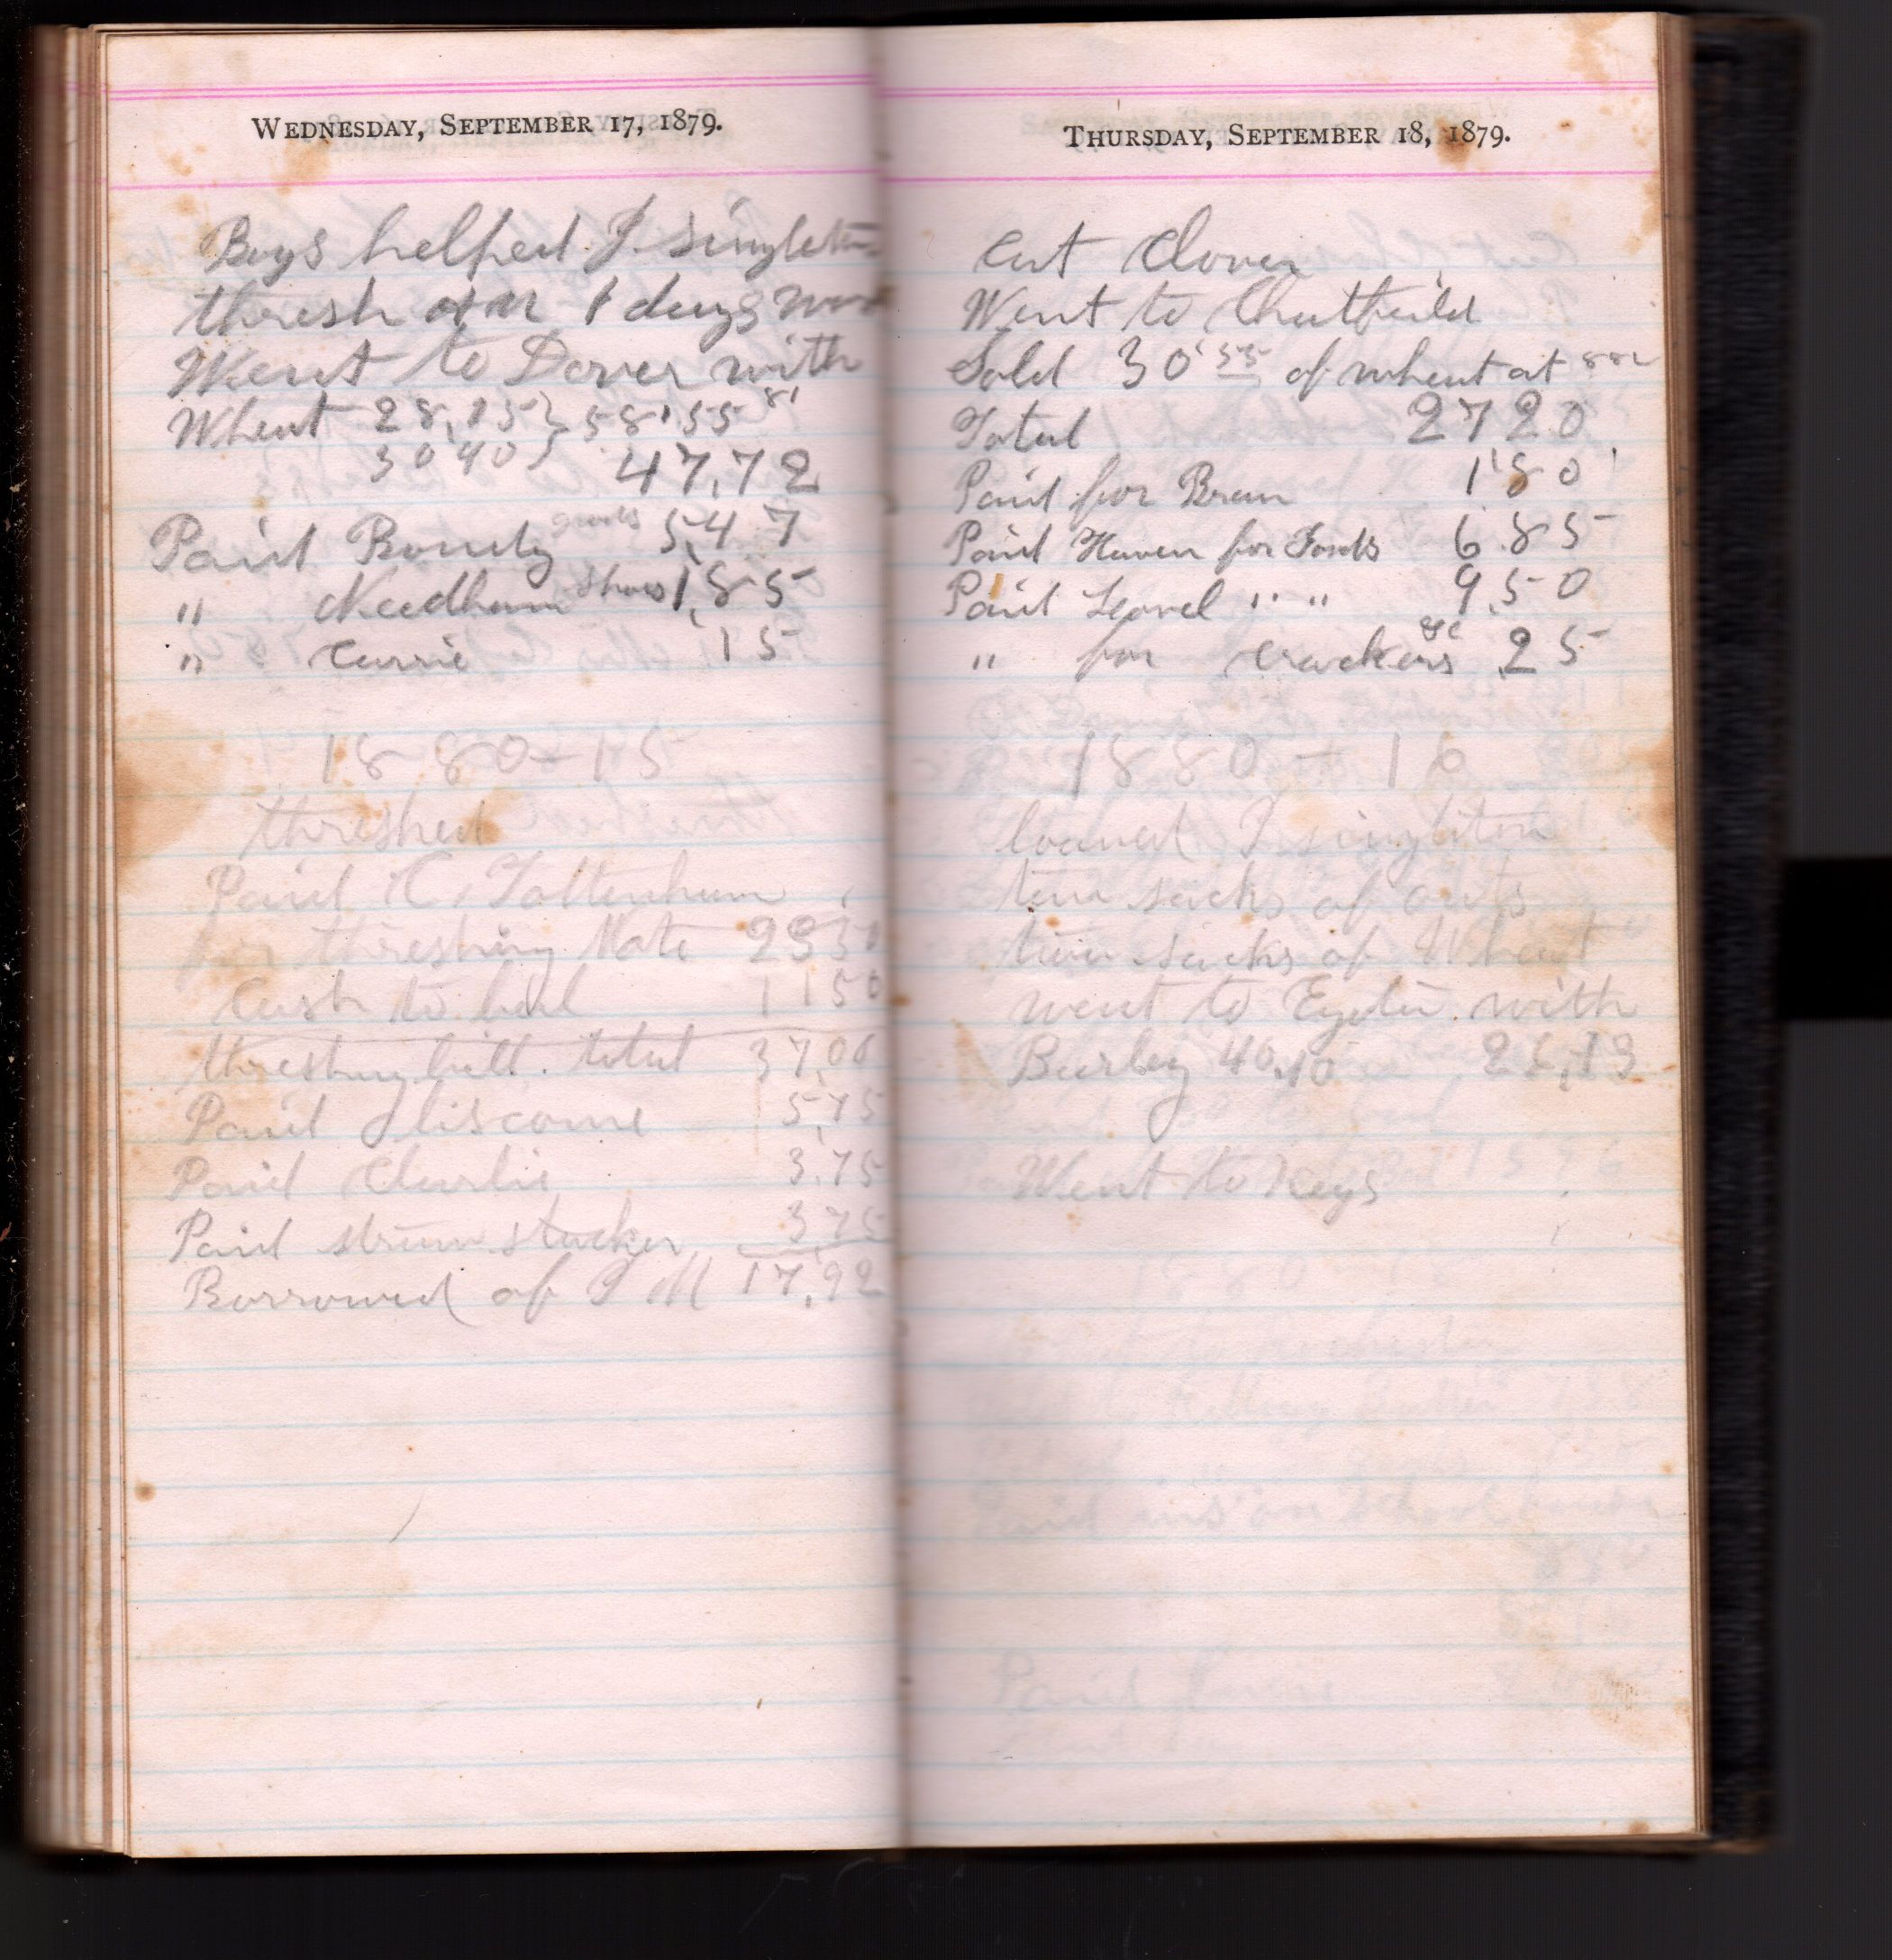 WEDNESDAY, SEPTEMBER 17, 1879.
Boys helped J. singleton
thresh 1 days
Went to Dover with
Wheat 28,15 } 58'55 81
30 40 } 47,72
Paid Bondy goods 5,47
" Needham shoes 1,85
" Currie 15
1880-15
threshed
Paid C. Tottenham
for threshing Note 2550
Cash to bal 1150
threshing bill. total 37,00
Paid 5,75
Paid Charlie 3.75
Paid straw stacker 375
Borrowed of J M 17,92
THURSDAY, SEPTEMBER 18, 1879.
Cut Clover
Went to Chatfeild
Sold 30'55 of wheat at 88c
Total 2720
Paid for Bran 180
Paid Haven for 685
Paid " " 9,50
" for crackers &c 25
1880 - 16
loaned J singleton
ten sacks of oats
two sacks of Wheat
went to Eyota with
Barley 40,10 26,13
Went to Keys